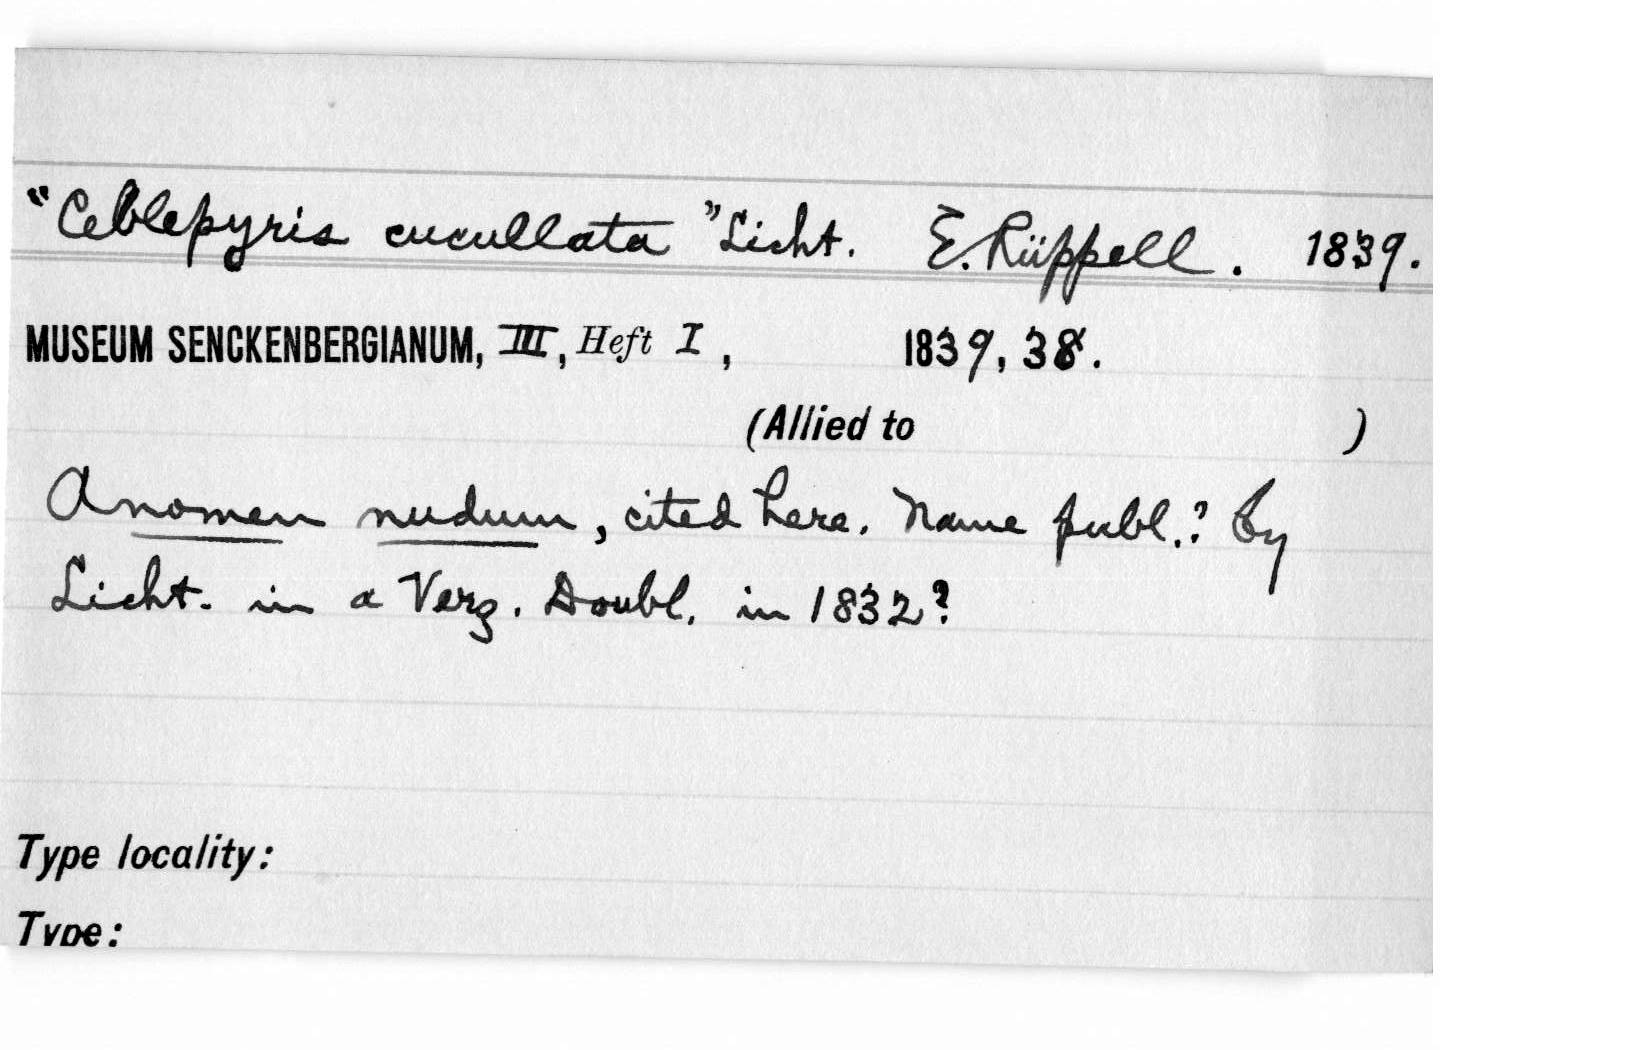 "Ceblepyris cucullata" Licht. E. Rüppell. 1839.
MUSEUM SENCKENBERGIANUM, III, Heft I, 1839, 38.
(Allied to )
A nomen nudum, cited here. Name publ.? by
Licht. in a Verz. Doubl. in 1832?
Type locality:
Type: